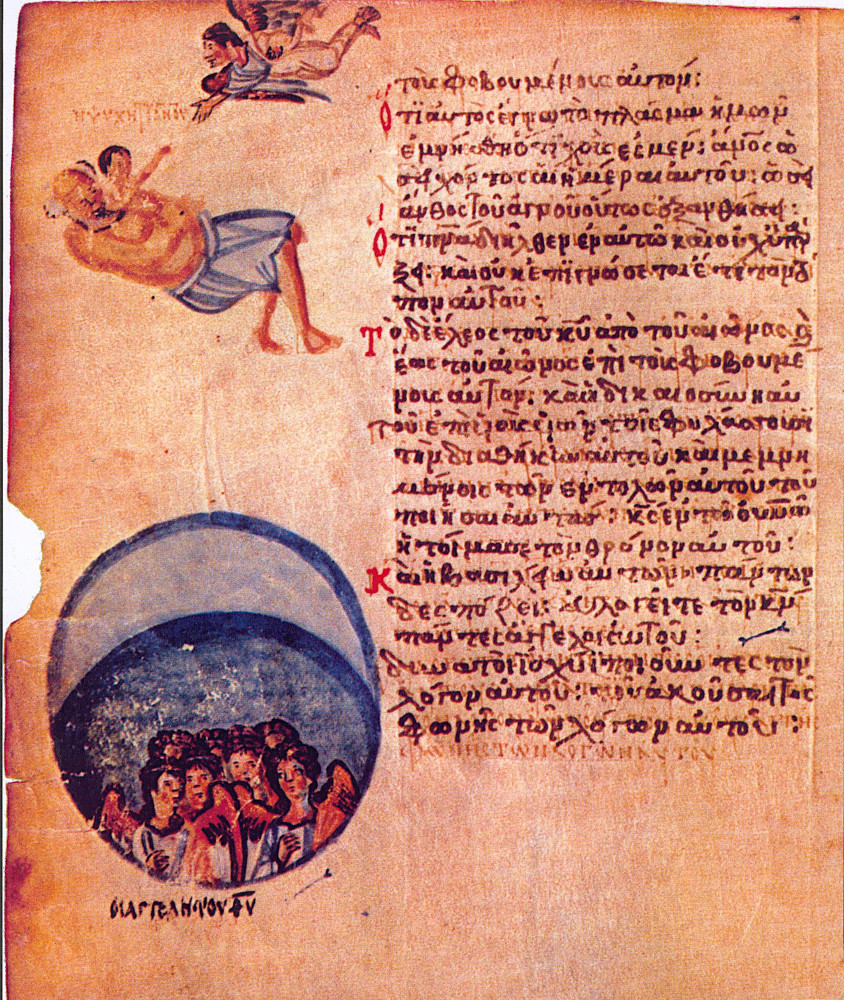 Η ΨΥΧΗ
τοῖς φοβουμένοις αὐτόν:
Ὅτι αὐτὸς ἔγνω τὸ πλάσμα ἡμῶν
ἐμνήσθη ὅτι χοῦς ἐσμεν: ἄνος ὡ
σεὶ χόρτος αἱ ἡμέραι αὐτοῦ: ὡσεὶ
ἄνθος τοῦ ἀγροῦ οὕτως ἐξανθήσει:
Ὅτι πνα διῆλθεν ἐν αὐτῷ καὶ οὐχ ὑπάρ
ξει: καὶ οὐκ ἐπιγνώσεται ἔτι τὸν τό
πον αὐτοῦ:
Τὸ δὲ ἔλεος τοῦ κυ ἀπὸ τοῦ αἰῶνος καὶ
ἕως τοῦ αἰῶνος ἐπὶ τοῖς φοβουμέ
νοις αὐτόν: καὶ ἡ δικαιοσύνη αὐ
τοῦ ἐπὶ υἱοῖς υἱῶν τοῖς φυλάσσουσι
τὴν διαθήκην αὐτοῦ καὶ μεμνη
μένοις τῶν ἐντολῶν αὐτοῦ τοῦ
ποιῆσαι αὐτάς: κς ἐν τῷ οὐνῷ
ἡτοίμασε τὸν θρόνον αὐτοῦ:
Καὶ ἡ βασιλεία αὐτοῦ πάντων
δεσπόζει: εὐλογεῖτε τὸν κν
πάντες ἄγγελοι αὐτοῦ:
δυνατοὶ ἰσχύι ποιοῦντες τὸν
λόγον αὐτοῦ: τοῦ ἀκοῦσαι τῆς
φωνῆς τῶν λόγων αὐτοῦ:
ΦΩΝΗΣ ΤΩΝ ΛΟΓΩΝ ΑΥΤΟΥ
ΟΙ ΑΓΓΕΛΗ ΤΟΥ ΘΥ